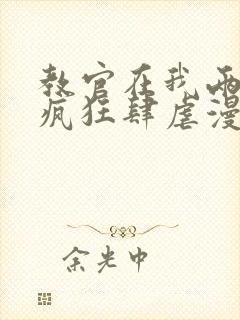 教官在我两
疯狂肆虐漫
余光中